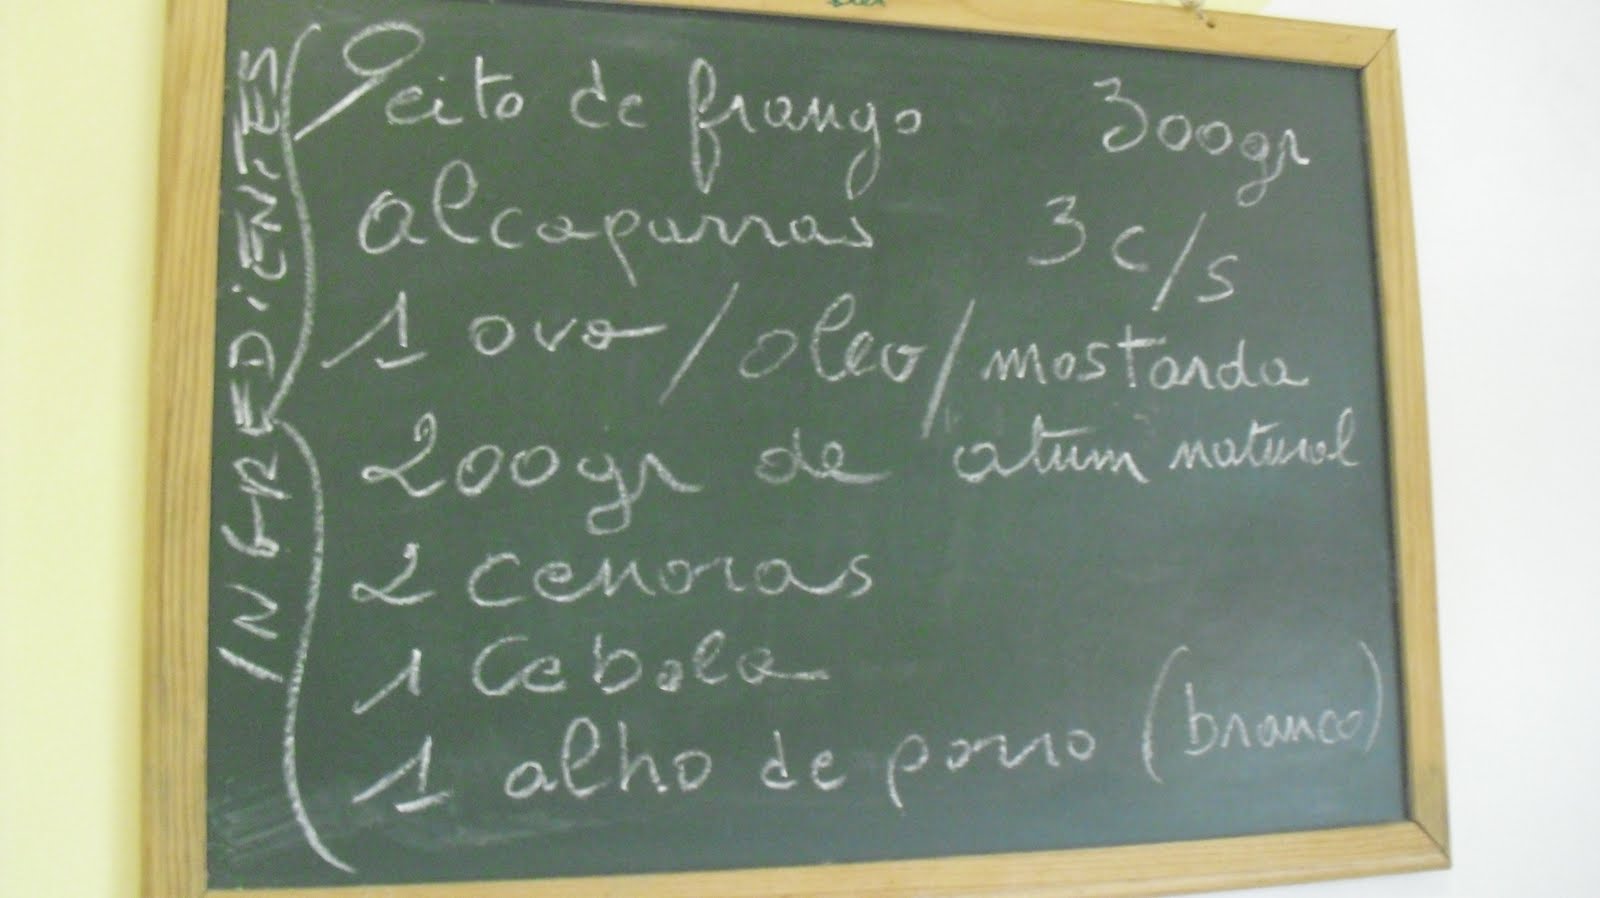 INGREDIENTES
Peito de frango 300gr
alcaparras 3 c/s
1 ovo / oleo / mostarda
200gr de atum natural
2 cenoras
1 Cebola
1 alho de porro (branco)